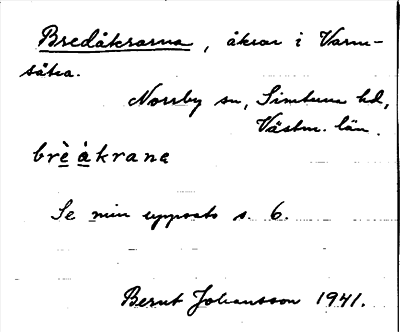 Bredåkrarna, åkrar i Varm-
sätra.
Norrby sn, Simtuna hd,
Västm. län.
brè åkrana
Se min uppsats s. 6.
Bernt Johansson 1941.